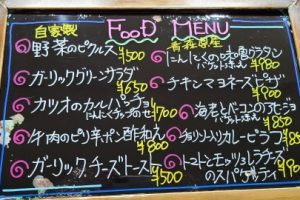 FOOD MENU
自家製
野菜のピクルス
¥500
ガーリックグリーンサラダ
¥650
カツオのカルパッチョ
にんにくチップのせ ¥700
牛肉のピリ辛ポン酢和え
¥800
ガーリックチーズトースト
¥500
青森県産
にんにくの和風グラタン
バケット添え ¥980
チキンマヨネーズピザ
¥900
海老とベーコンのアヒージョ
バケット添え
チョリソートリカレーピラフ
トマトとモッツァレラチーズ
のスパゲッティ